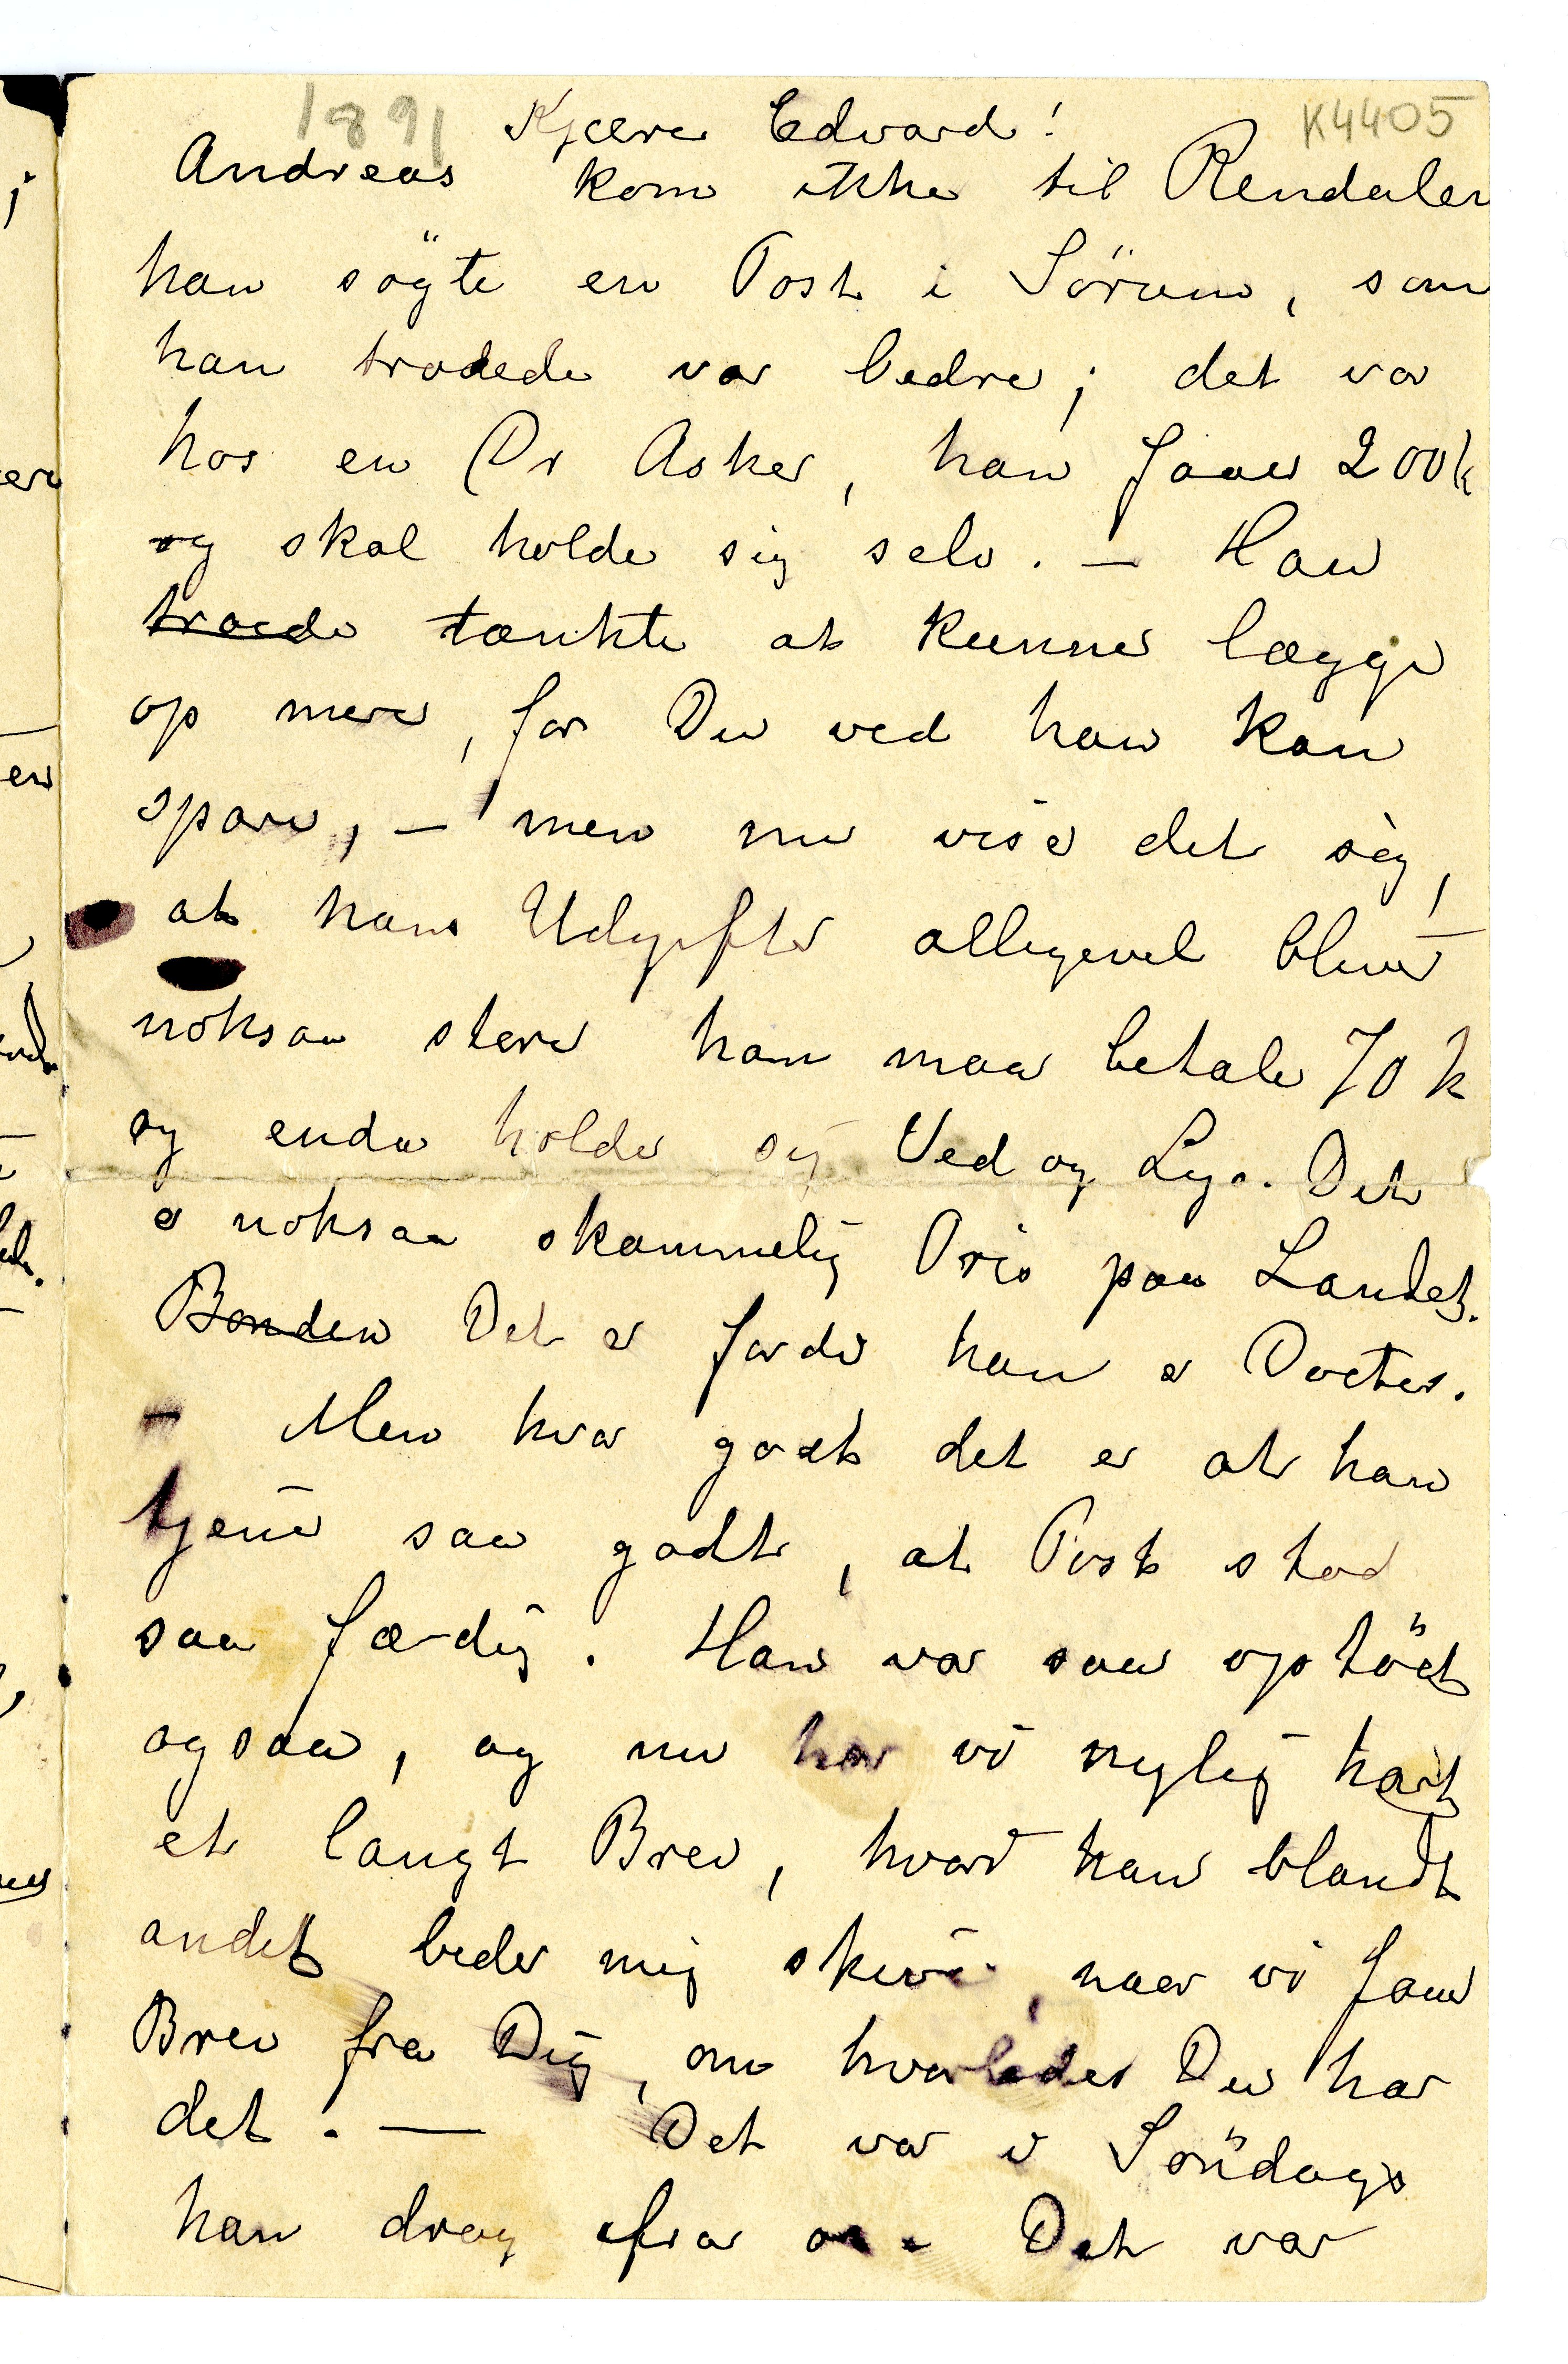 1891
K4405
Kjære Edvard!
Andreas kom ikke til Rendalen
han søgte en Post i Sörum, som
han trodede var bedre; det var
hos en Dr Asker, han faaer 200 k
og skal holde sig selv. — Han
troede tænkte at kunne lægge
op mere, for Du ved han kan
spare, — men nu viser det sig,
at hans Udgifter alligevel bliver
noksaa store han maa betale 70 k
og enda holde sig Ved og Lys. Det
er noksaa skammelig Pris paa Landet.
Bonden Det er fordi han er Doctor.
— Men hvor godt det er at han
tjener saa godt, at Post stod
saa færdig. Han var saa opsat
ogsaa, og nu har vi nylig havt
et langt Brev, hvori han blandt
andet beder mig skrive, naar vi faar
Brev fra Dig, om hvorledes Du har
det. — Det var i Söndags
han drog ifra os. Det var